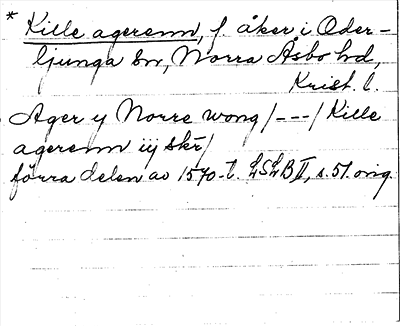 * Kille agerenn, f. åker i Oder-
ljunga sn, Norra Åsbo hd,
Krist. l.
Ager y Norre wong /---/ Kille
agerenn iij skr/
förra delen av 1570-t. LSLB II, s. 51. orig.